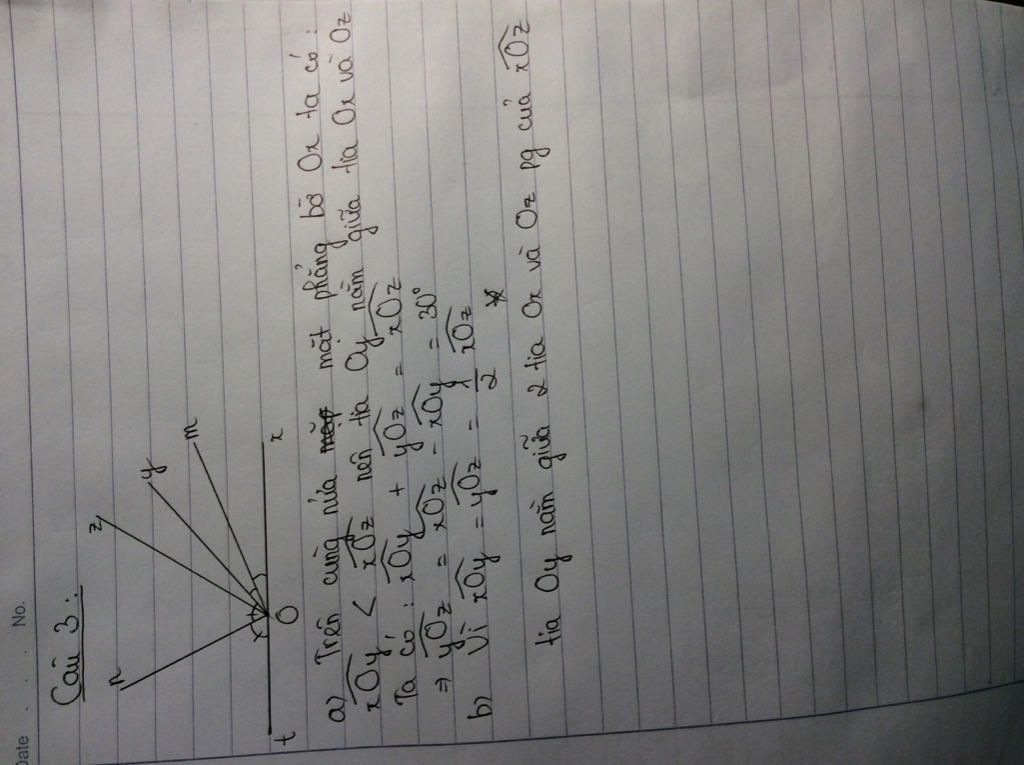 Date . . . No.
Câu 3 :
n
z
y
m
t
O
x
a) Trên cùng nửa mặt phẳng bờ Ox ta có :
xOy < xOz nên tia Oy nằm giữa tia Ox và Oz
Ta có : xOy + yOz = xOz
⇒ yOz = xOz - xOy = 30°
b) Vì xOy = yOz = 1/2 xOz
tia Oy nằm giữa 2 tia Ox và Oz pg của xOz